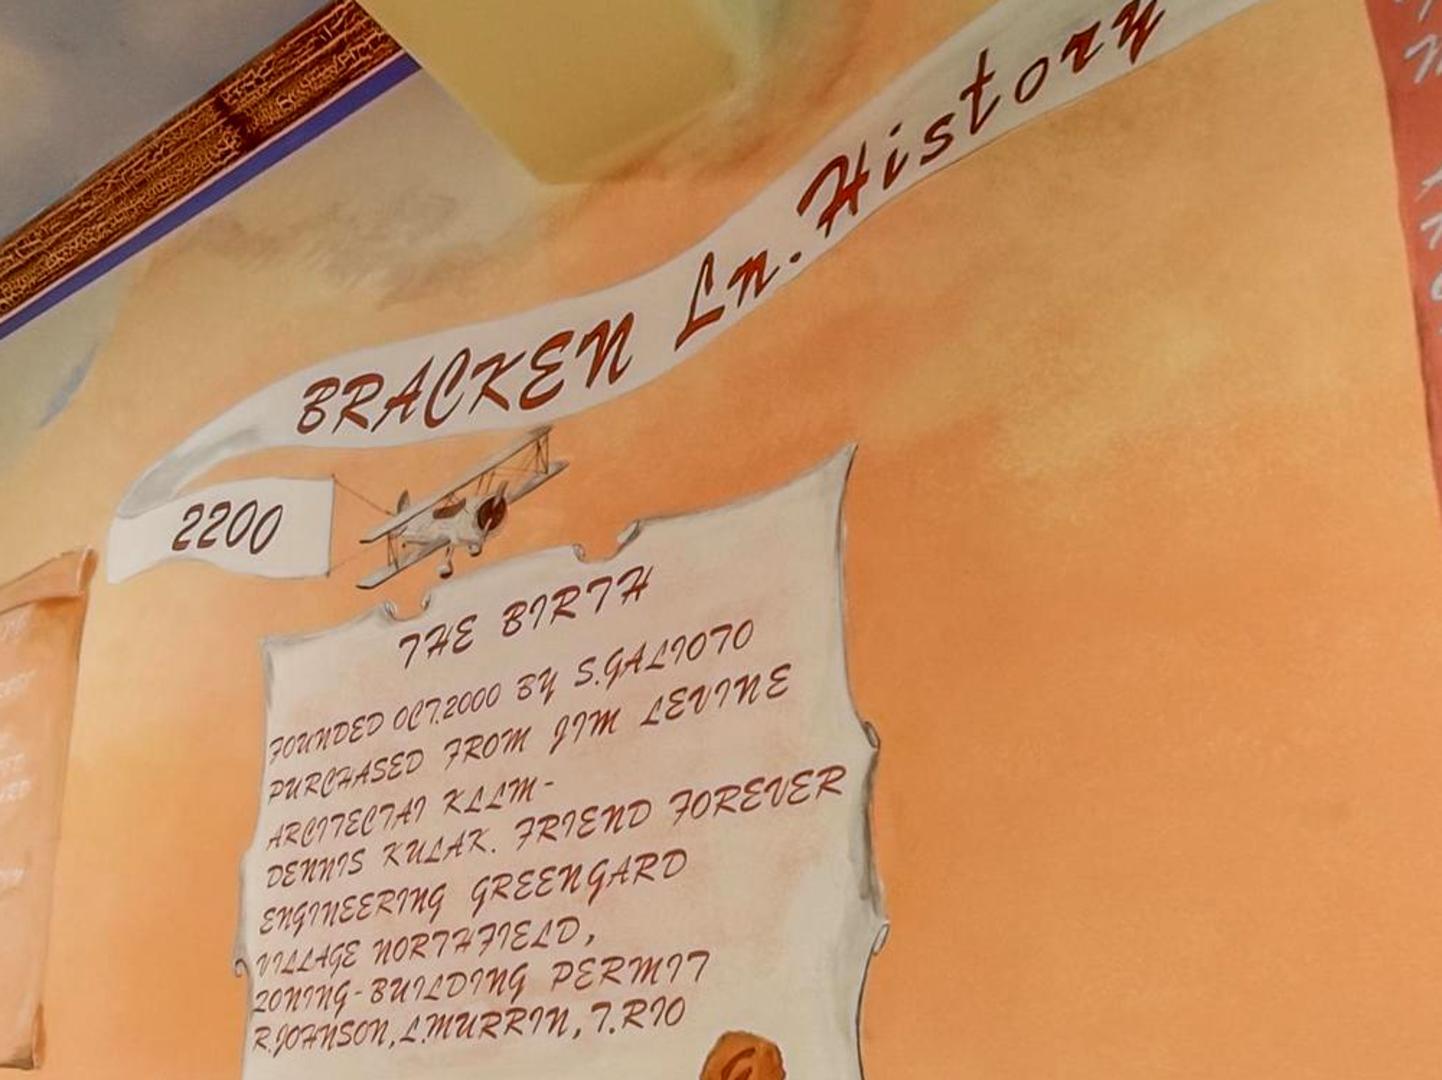 BRACKEN Ln. History
2200
THE BIRTH
FOUNDED OCT.2000 BY S.GALIOTO
PURCHASED FROM JIM LEVINE
ARCITECTAI KLLM-
DENNIS KULAK. FRIEND FOREVER
ENGINEERING GREENGARD
VILLAGE NORTHFIELD,
ZONING-BUILDING PERMIT
R.JOHNSON,L.MURRIN,T.RIO